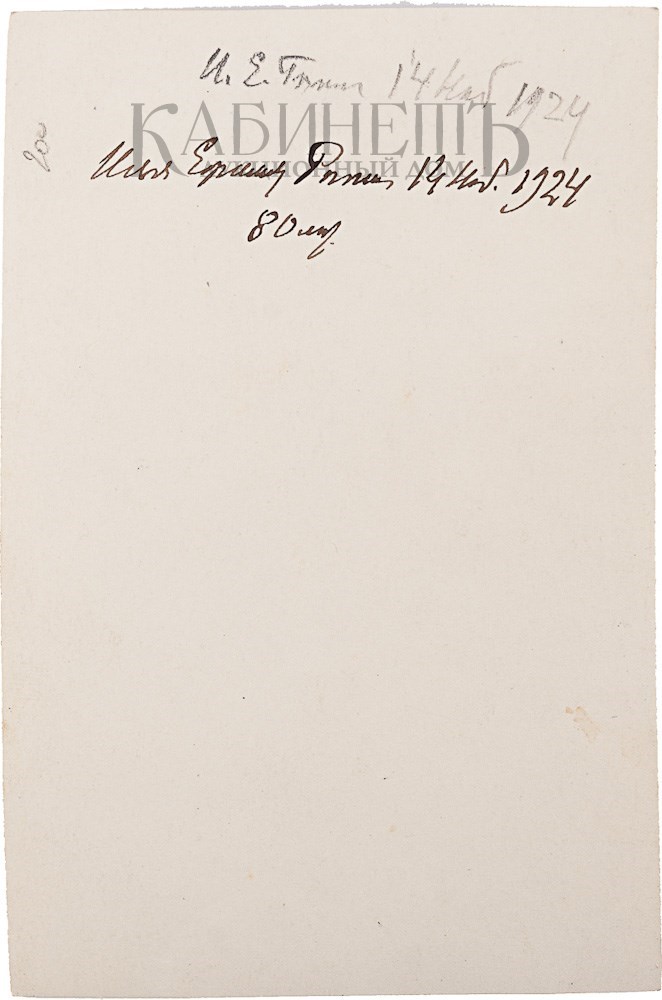 И. Е. Репин 14 Нояб 1924
КАБИНЕТЪ
АУКЦИОННЫЙ ДОМ
200
Илья Ефимович Репин 14 Нояб. 1924
80 лет